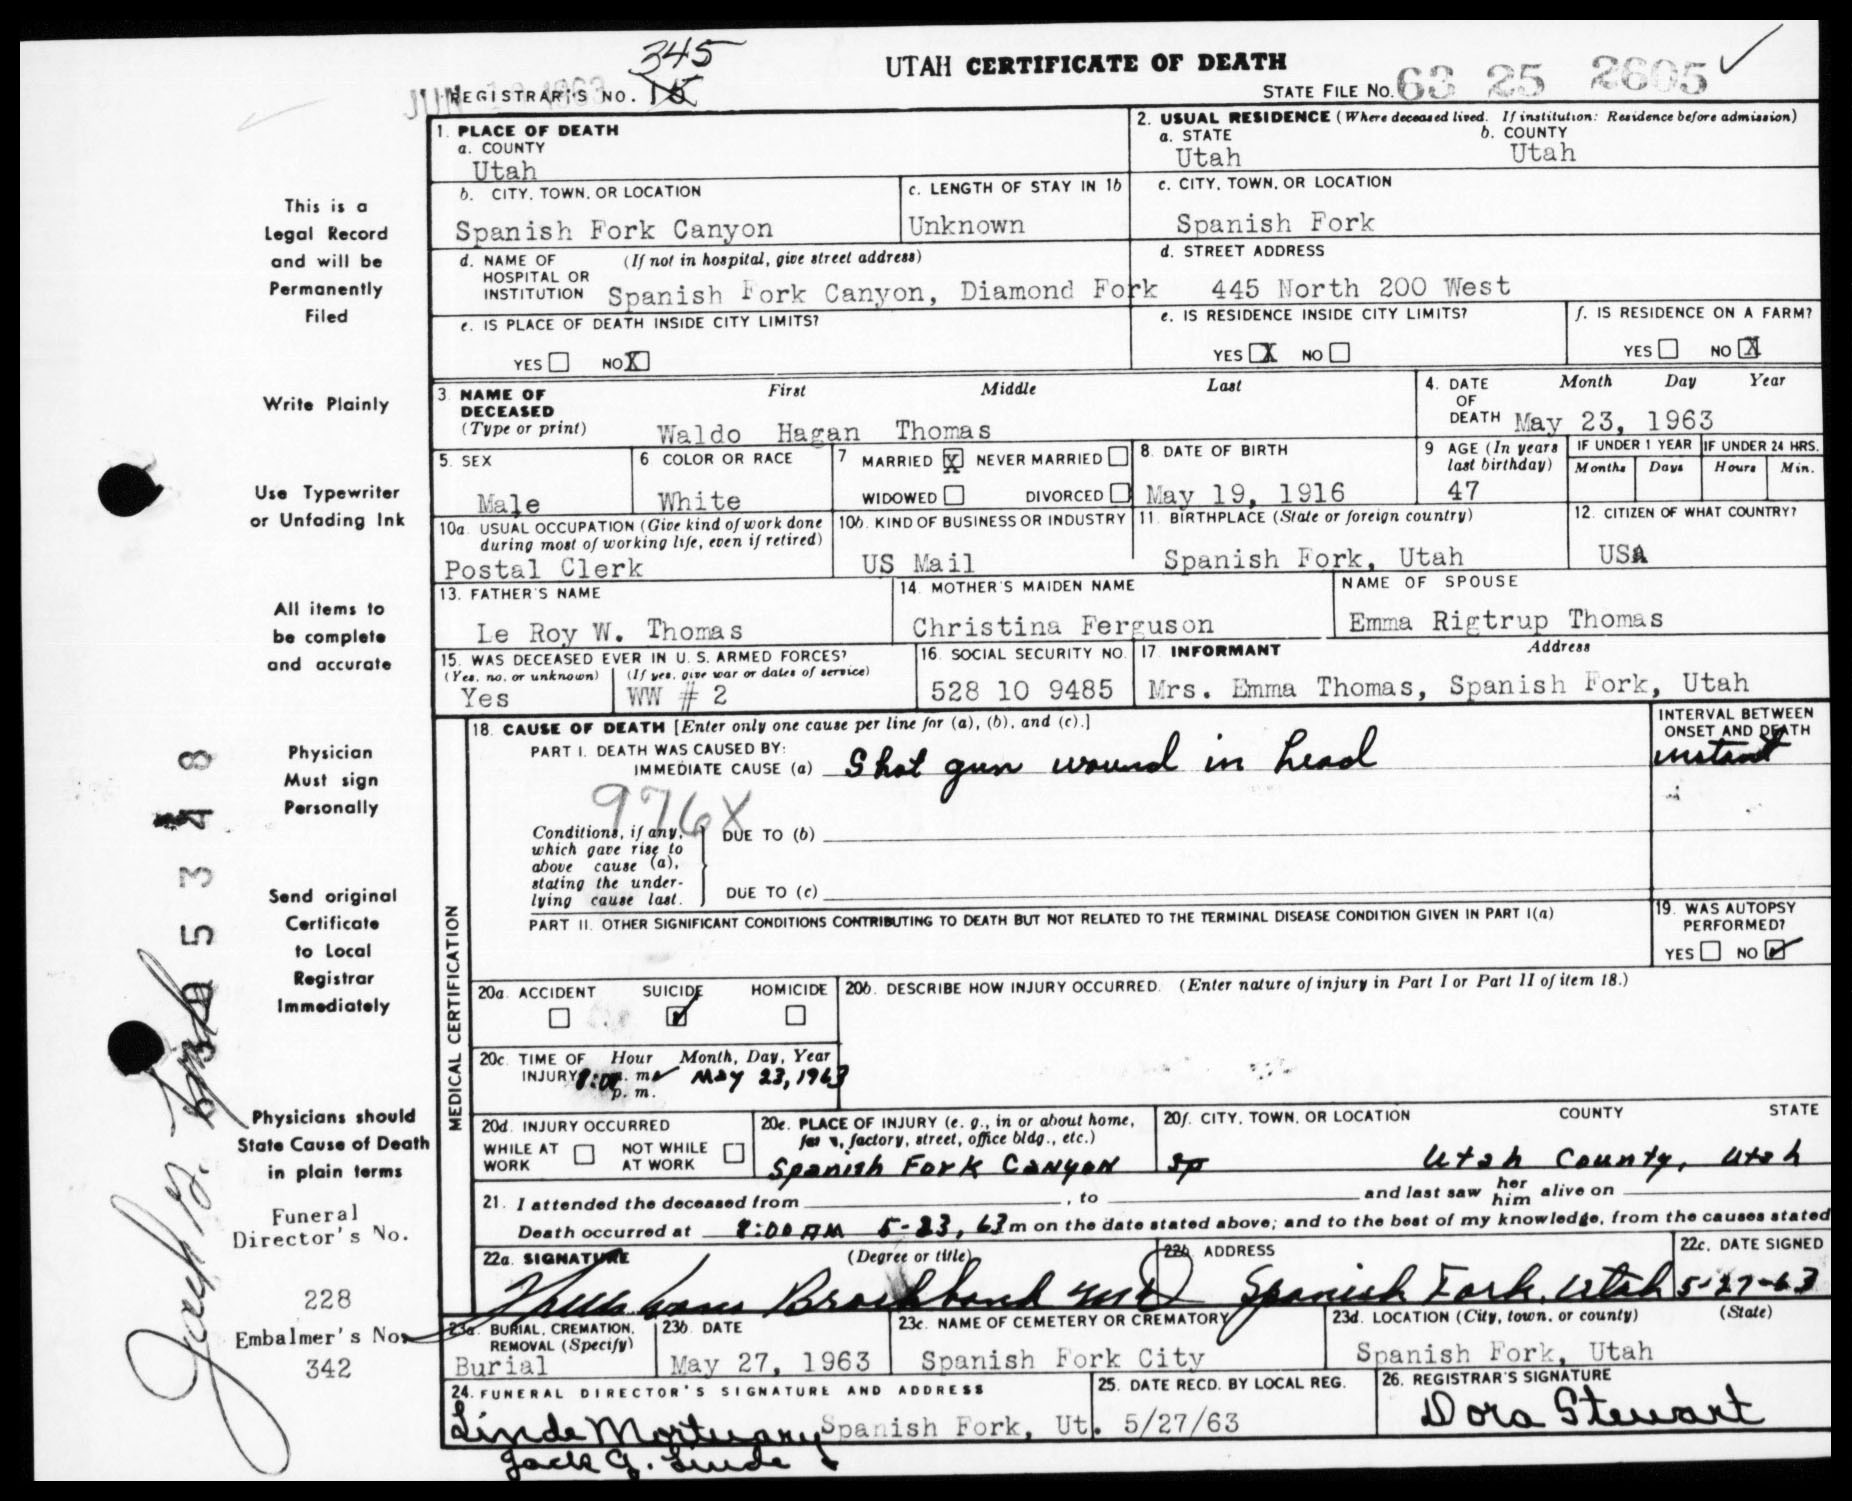 345
UTAH CERTIFICATE OF DEATH
JUN 1963
REGISTRAR'S NO. 15
STATE FILE NO. 63 25 2605
1. PLACE OF DEATH
a. COUNTY
Utah
2. USUAL RESIDENCE (Where deceased lived. If institution: Residence before admission)
a. STATE
Utah
b. COUNTY
Utah
b. CITY, TOWN, OR LOCATION
Spanish Fork Canyon
c. LENGTH OF STAY IN 1b
Unknown
c. CITY, TOWN, OR LOCATION
Spanish Fork
d. NAME OF HOSPITAL OR INSTITUTION
(If not in hospital, give street address)
Spanish Fork Canyon, Diamond Fork
d. STREET ADDRESS
445 North 200 West
e. IS PLACE OF DEATH INSIDE CITY LIMITS?
YES NO X
e. IS RESIDENCE INSIDE CITY LIMITS?
YES X NO
f. IS RESIDENCE ON A FARM?
YES NO X
3. NAME OF DECEASED
(Type or print)
First Middle Last
Waldo Hagan Thomas
4. DATE OF DEATH
Month Day Year
May 23, 1963
5. SEX
Male
6 COLOR OR RACE
White
7 MARRIED X NEVER MARRIED
WIDOWED DIVORCED
8. DATE OF BIRTH
May 19, 1916
9 AGE (In years last birthday)
47
IF UNDER 1 YEAR
Months Days
IF UNDER 24 HRS.
Hours Min.
10a. USUAL OCCUPATION (Give kind of work done during most of working life, even if retired)
Postal Clerk
10b. KIND OF BUSINESS OR INDUSTRY
US Mail
11. BIRTHPLACE (State or foreign country)
Spanish Fork, Utah
12. CITIZEN OF WHAT COUNTRY?
USA
13. FATHER'S NAME
Le Roy W. Thomas
14. MOTHER'S MAIDEN NAME
Christina Ferguson
NAME OF SPOUSE
Emma Rigtrup Thomas
15. WAS DECEASED EVER IN U. S. ARMED FORCES?
(Yes, no, or unknown)
Yes
(If yes, give war or dates of service)
WW # 2
16. SOCIAL SECURITY NO.
528 10 9485
17. INFORMANT Address
Mrs. Emma Thomas, Spanish Fork, Utah
MEDICAL CERTIFICATION
18. CAUSE OF DEATH [Enter only one cause per line for (a), (b), and (c).]
PART I. DEATH WAS CAUSED BY:
IMMEDIATE CAUSE (a) Shot gun wound in head
INTERVAL BETWEEN ONSET AND DEATH
instant
976X
Conditions, if any, which gave rise to above cause (a), stating the underlying cause last.
DUE TO (b)
DUE TO (c)
PART II. OTHER SIGNIFICANT CONDITIONS CONTRIBUTING TO DEATH BUT NOT RELATED TO THE TERMINAL DISEASE CONDITION GIVEN IN PART I(a)
19. WAS AUTOPSY PERFORMED?
YES NO
20a. ACCIDENT SUICIDE HOMICIDE
20b. DESCRIBE HOW INJURY OCCURRED. (Enter nature of injury in Part I or Part II of item 18.)
20c. TIME OF INJURY
Hour Month, Day, Year
8:00 a. m. May 23, 1963
p. m.
20d. INJURY OCCURRED
WHILE AT WORK
NOT WHILE AT WORK
20e. PLACE OF INJURY (e. g., in or about home, farm, factory, street, office bldg., etc.)
Spanish Fork Canyon
20f. CITY, TOWN, OR LOCATION COUNTY STATE
Sp Utah County, Utah
21. I attended the deceased from , to and last saw her him alive on
Death occurred at 8:00 AM 5-23, 63 m on the date stated above; and to the best of my knowledge, from the causes stated
22a. SIGNATURE (Degree or title)
Brockbank MD
22b. ADDRESS
Spanish Fork, Utah
22c. DATE SIGNED
5-27-63
23a. BURIAL, CREMATION, REMOVAL (Specify)
Burial
23b. DATE
May 27, 1963
23c. NAME OF CEMETERY OR CREMATORY
Spanish Fork City
23d. LOCATION (City, town, or county) (State)
Spanish Fork, Utah
24. FUNERAL DIRECTOR'S SIGNATURE AND ADDRESS
Linde Mortuary Spanish Fork, Ut.
Jack G. Linde
25. DATE RECD. BY LOCAL REG.
5/27/63
26. REGISTRAR'S SIGNATURE
Dora Stewart
This is a
Legal Record
and will be
Permanently
Filed
Write Plainly
Use Typewriter
or Unfading Ink
All items to
be complete
and accurate
Physician
Must sign
Personally
Send original
Certificate
to Local
Registrar
Immediately
Physicians should
State Cause of Death
in plain terms
Funeral
Director's No.
228
Embalmer's No.
342